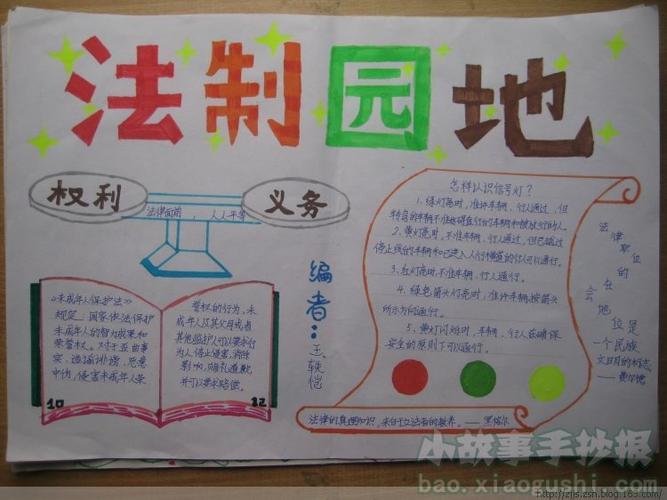 法制园地
权利
义务
法律面前，人人平等
编者：王轶恺
《未成年人保护法》
规定：国家依法保护
未成年人的智力成果和
荣誉权。对于歪曲事
实，造谣诽谤，恶意
中伤，侵害未成年人荣
10
誉权的行为，未
成年人及其父母或者
其他监护人可以要求行
为人停止侵害，消除
影响，赔礼道歉，
并可以要求赔偿。
12
怎样认识信号灯？
1、绿灯亮时，准许车辆、行人通过，但
转弯的车辆不准妨碍直行的车辆和被放行的行人。
2、黄灯亮时，不准车辆、行人通行，但已越过
停止线的车辆和已进入人行横道的行人可以通行。
3、红灯亮时，不准车辆、行人通行。
4、绿色箭头灯亮时，准许车辆按箭头
所示方向通行。
5、黄灯闪烁时，车辆、行人在确保
安全的原则下可以通行。
法律的真理知识，来自于立法者的教养。——黑格尔
法律职位的
社会地位是
一个民族
文明的标志。
——费尔德
小故事手抄报
bao.xiaogushi.com
http://zjls.zsn.blog.163.com/